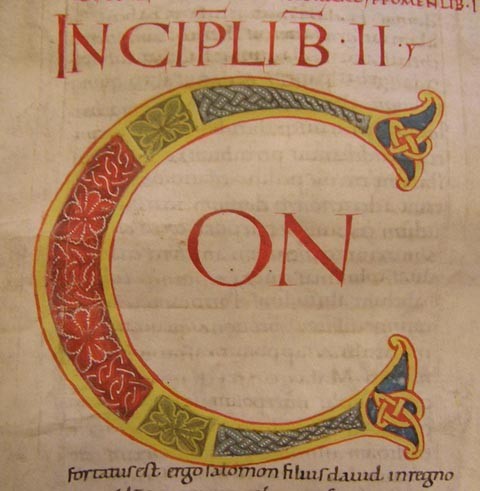 INCIP̅ LIB · II ·
CON
fortatus est ergo salomon filius david in regno